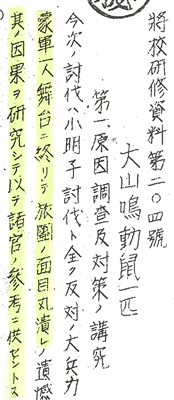 將校研修資料第二〇四號
大山鳴動鼠一匹
第一 原因調査及対策ノ講究
今次ノ討伐ハ小明子討伐ト全ク反対ノ大兵力
蒙軍一人舞台ニ終リテ旅團ノ面目丸潰レノ遺憾
其ノ因果ヲ研究シテ以テ諸官ノ參考ニ供セントス